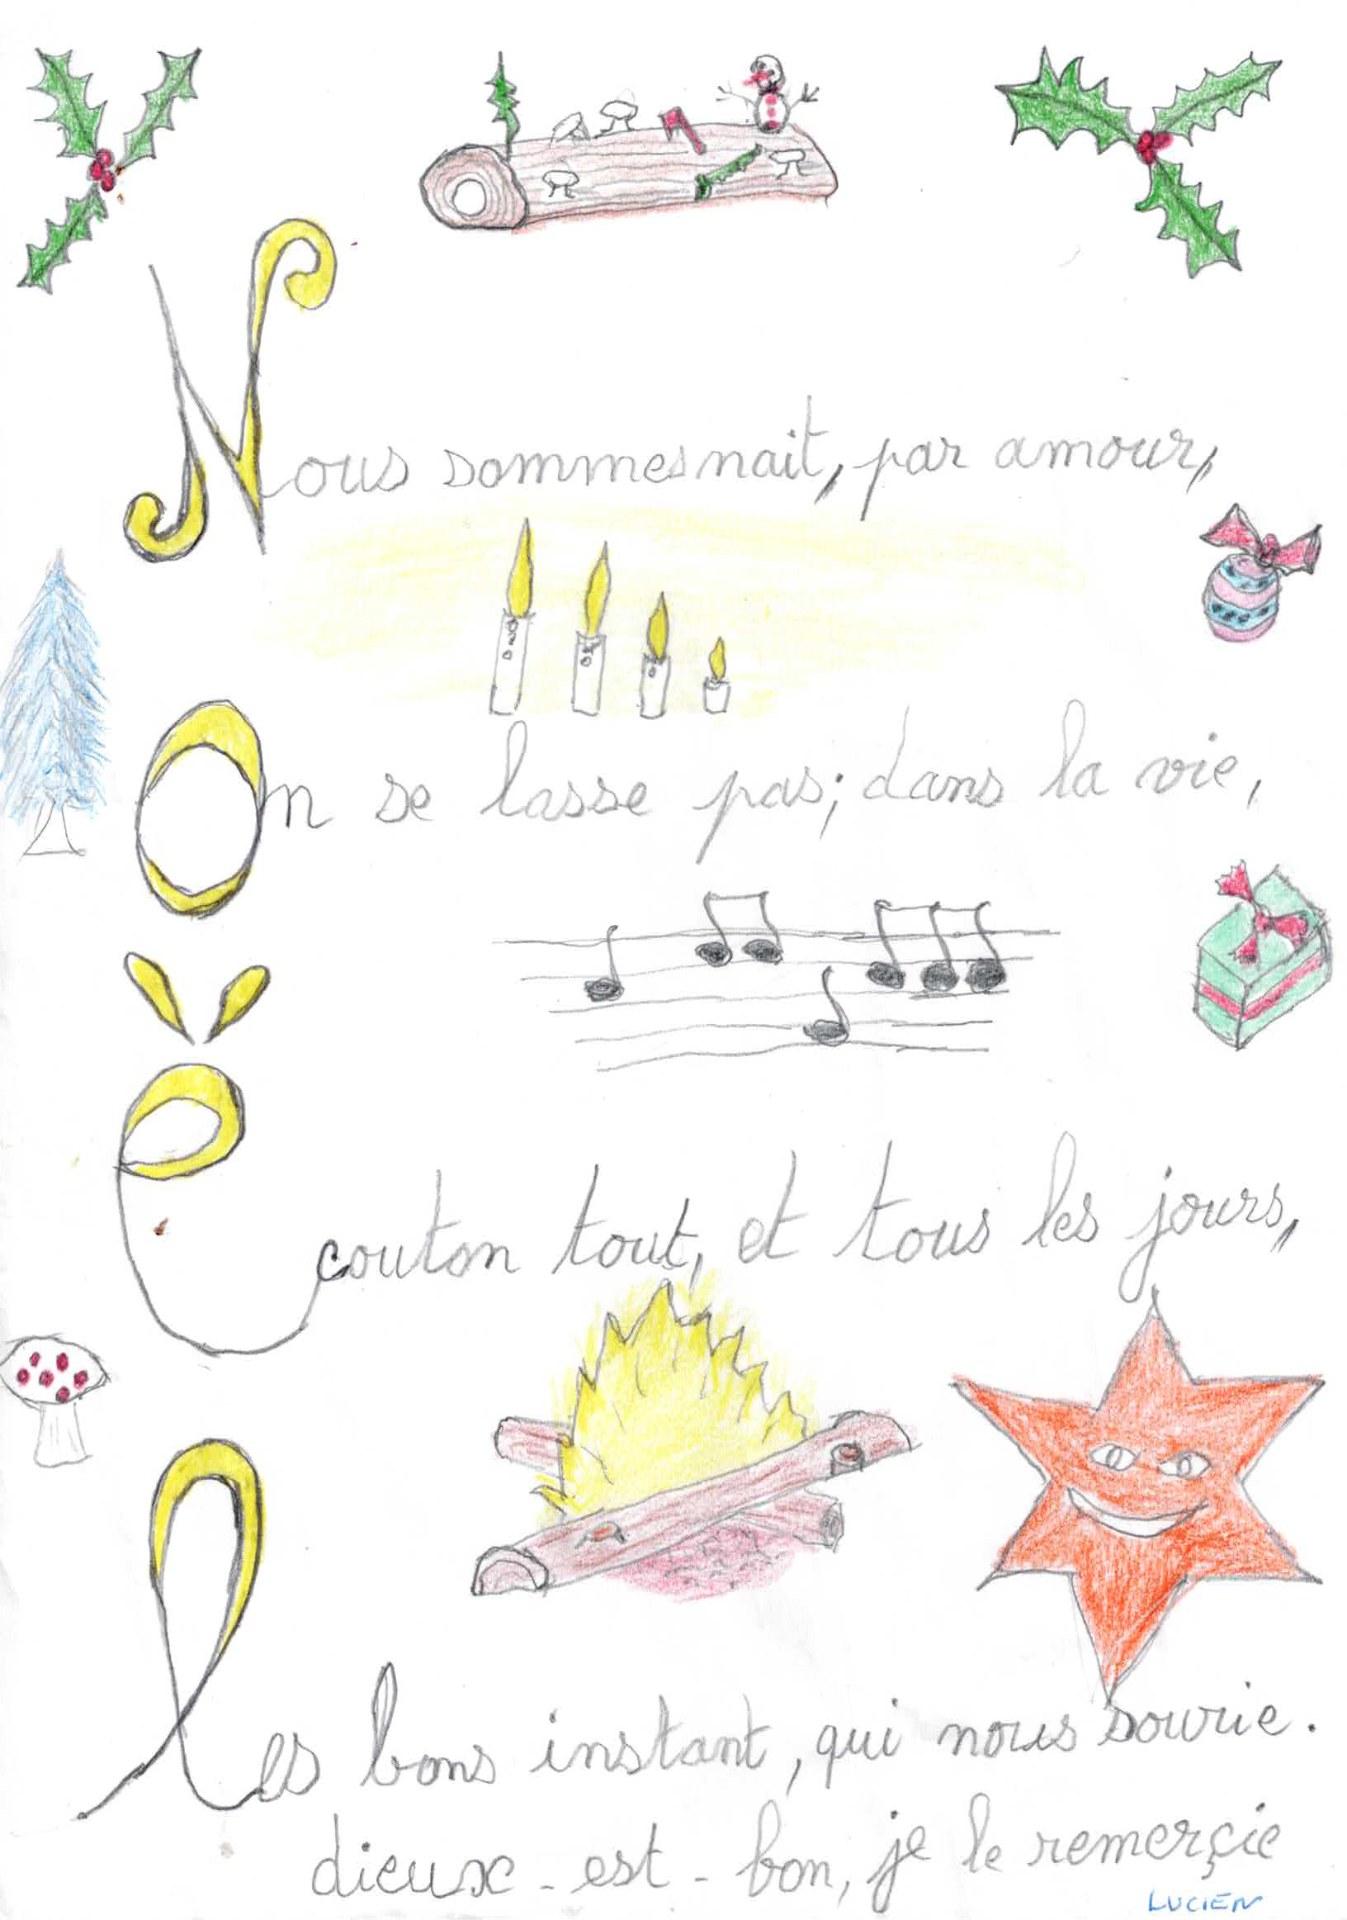 Nous sommes nait, par amour,
On se lasse pas; dans la vie,
Ëcouton tout, et tous les jours,
les bons instant, qui nous sourie.
dieux - est - bon, je le remerçie
LUCIEN